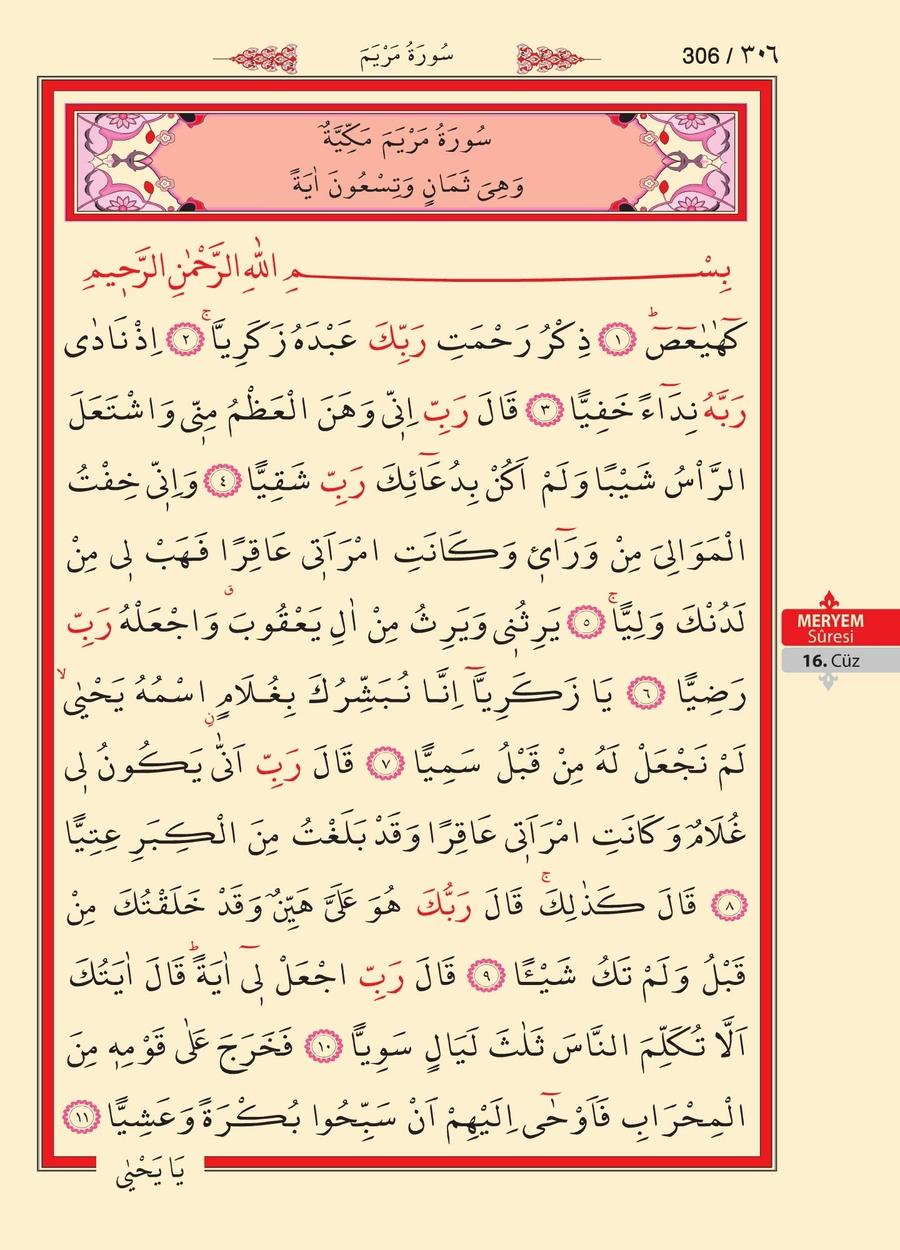 306 / ٣٠٦
سُورَةُ مَرْيَمَ
سُورَةُ مَرْيَمَ مَكِّيَّةٌ
وَهِىَ ثَمَانٍ وَتِسْعُونَ اٰيَةً
بِسْمِ اللّٰهِ الرَّحْمٰنِ الرَّحٖيمِ
كٓهٰيٰعٓصٓ ۜ ﴿١﴾ ذِكْرُ رَحْمَتِ رَبِّكَ عَبْدَهُ زَكَرِيَّاۚ ﴿٢﴾ اِذْ نَادٰى
رَبَّهُ نِدَٓاءً خَفِيًّا ﴿٣﴾ قَالَ رَبِّ اِنّٖى وَهَنَ الْعَظْمُ مِنّٖى وَاشْتَعَلَ
الرَّاْسُ شَيْبًا وَلَمْ اَكُنْ بِدُعَٓائِكَ رَبِّ شَقِيًّا ﴿٤﴾ وَاِنّٖى خِفْتُ
الْمَوَالِىَ مِنْ وَرَٓائٖ وَكَانَتِ امْرَاَتٖى عَاقِرًا فَهَبْ لٖى مِنْ
لَدُنْكَ وَلِيًّاۚ ﴿٥﴾ يَرِثُنٖى وَيَرِثُ مِنْ اٰلِ يَعْقُوبَۗ وَاجْعَلْهُ رَبِّ
رَضِيًّا ﴿٦﴾ يَا زَكَرِيَّٓا اِنَّا نُبَشِّرُكَ بِغُلَامٍۨ اسْمُهُ يَحْيٰىۙ
لَمْ نَجْعَلْ لَهُ مِنْ قَبْلُ سَمِيًّا ﴿٧﴾ قَالَ رَبِّ اَنّٰى يَكُونُ لٖى
غُلَامٌ وَكَانَتِ امْرَاَتٖى عَاقِرًا وَقَدْ بَلَغْتُ مِنَ الْكِبَرِ عِتِيًّا
﴿٨﴾ قَالَ كَذٰلِكَۚ قَالَ رَبُّكَ هُوَ عَلَىَّ هَيِّنٌ وَقَدْ خَلَقْتُكَ مِنْ
قَبْلُ وَلَمْ تَكُ شَيْـًٔا ﴿٩﴾ قَالَ رَبِّ اجْعَلْ لٖٓى اٰيَةًۜ قَالَ اٰيَتُكَ
اَلَّا تُكَلِّمَ النَّاسَ ثَلٰثَ لَيَالٍ سَوِيًّا ﴿١٠﴾ فَخَرَجَ عَلٰى قَوْمِهٖ مِنَ
الْمِحْرَابِ فَاَوْحٰٓى اِلَيْهِمْ اَنْ سَبِّحُوا بُكْرَةً وَعَشِيًّا ﴿١١﴾
يَا يَحْيٰى
MERYEM
Sûresi
16. Cüz